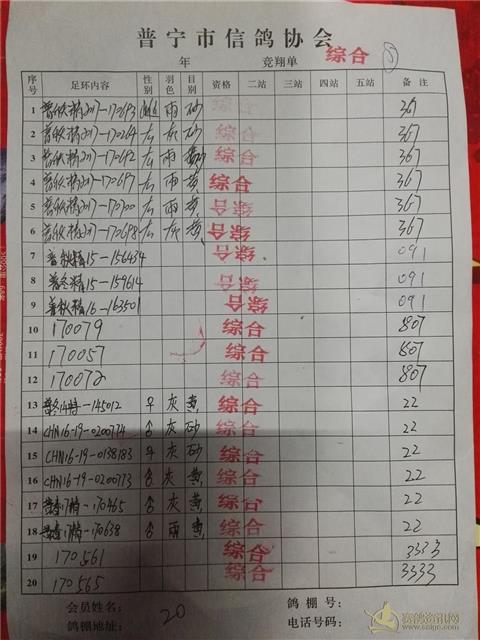 普宁市信鸽协会
年 竞翔单 综合 5
序号 足环内容 性别 羽色 目别 资格 二站 三站 四站 五站 备注
1 普秋精2017-170693 雨 砂 综合 367
2 普秋精2017-170264 灰 砂 综合 367
3 普秋精2017-170692 雨 砂 综合 367
4 普秋精2017-170697 雨 黄 综合 367
5 普秋精2017-170700 雨 黄 综合 367
6 普秋精2017-170698 灰 黄 综合 367
7 普秋精15-156434 综合 091
8 普冬精15-159614 综合 091
9 普秋精16-163501 综合 091
10 170079 综合 807
11 170057 综合 807
12 170072 综合 807
13 普冬14特-145012 ♀ 灰 黄 综合 22
14 CHN16-19-0200774 ♂ 灰 砂 综合 22
15 CHN16-19-0138183 ♀ 灰 砂 综合 22
16 CHN16-19-0200773 ♂ 灰 黄 综合 22
17 普春17精-170465 ♂ 灰 黄 综合 22
18 普春17精-170638 ♂ 雨 黄 综合 22
19 170561 综合 3333
20 170565 综合 3333
会员姓名: 20 鸽棚号:
鸽棚地址: 电话号码:
赛鸽资讯网
www.saige.com